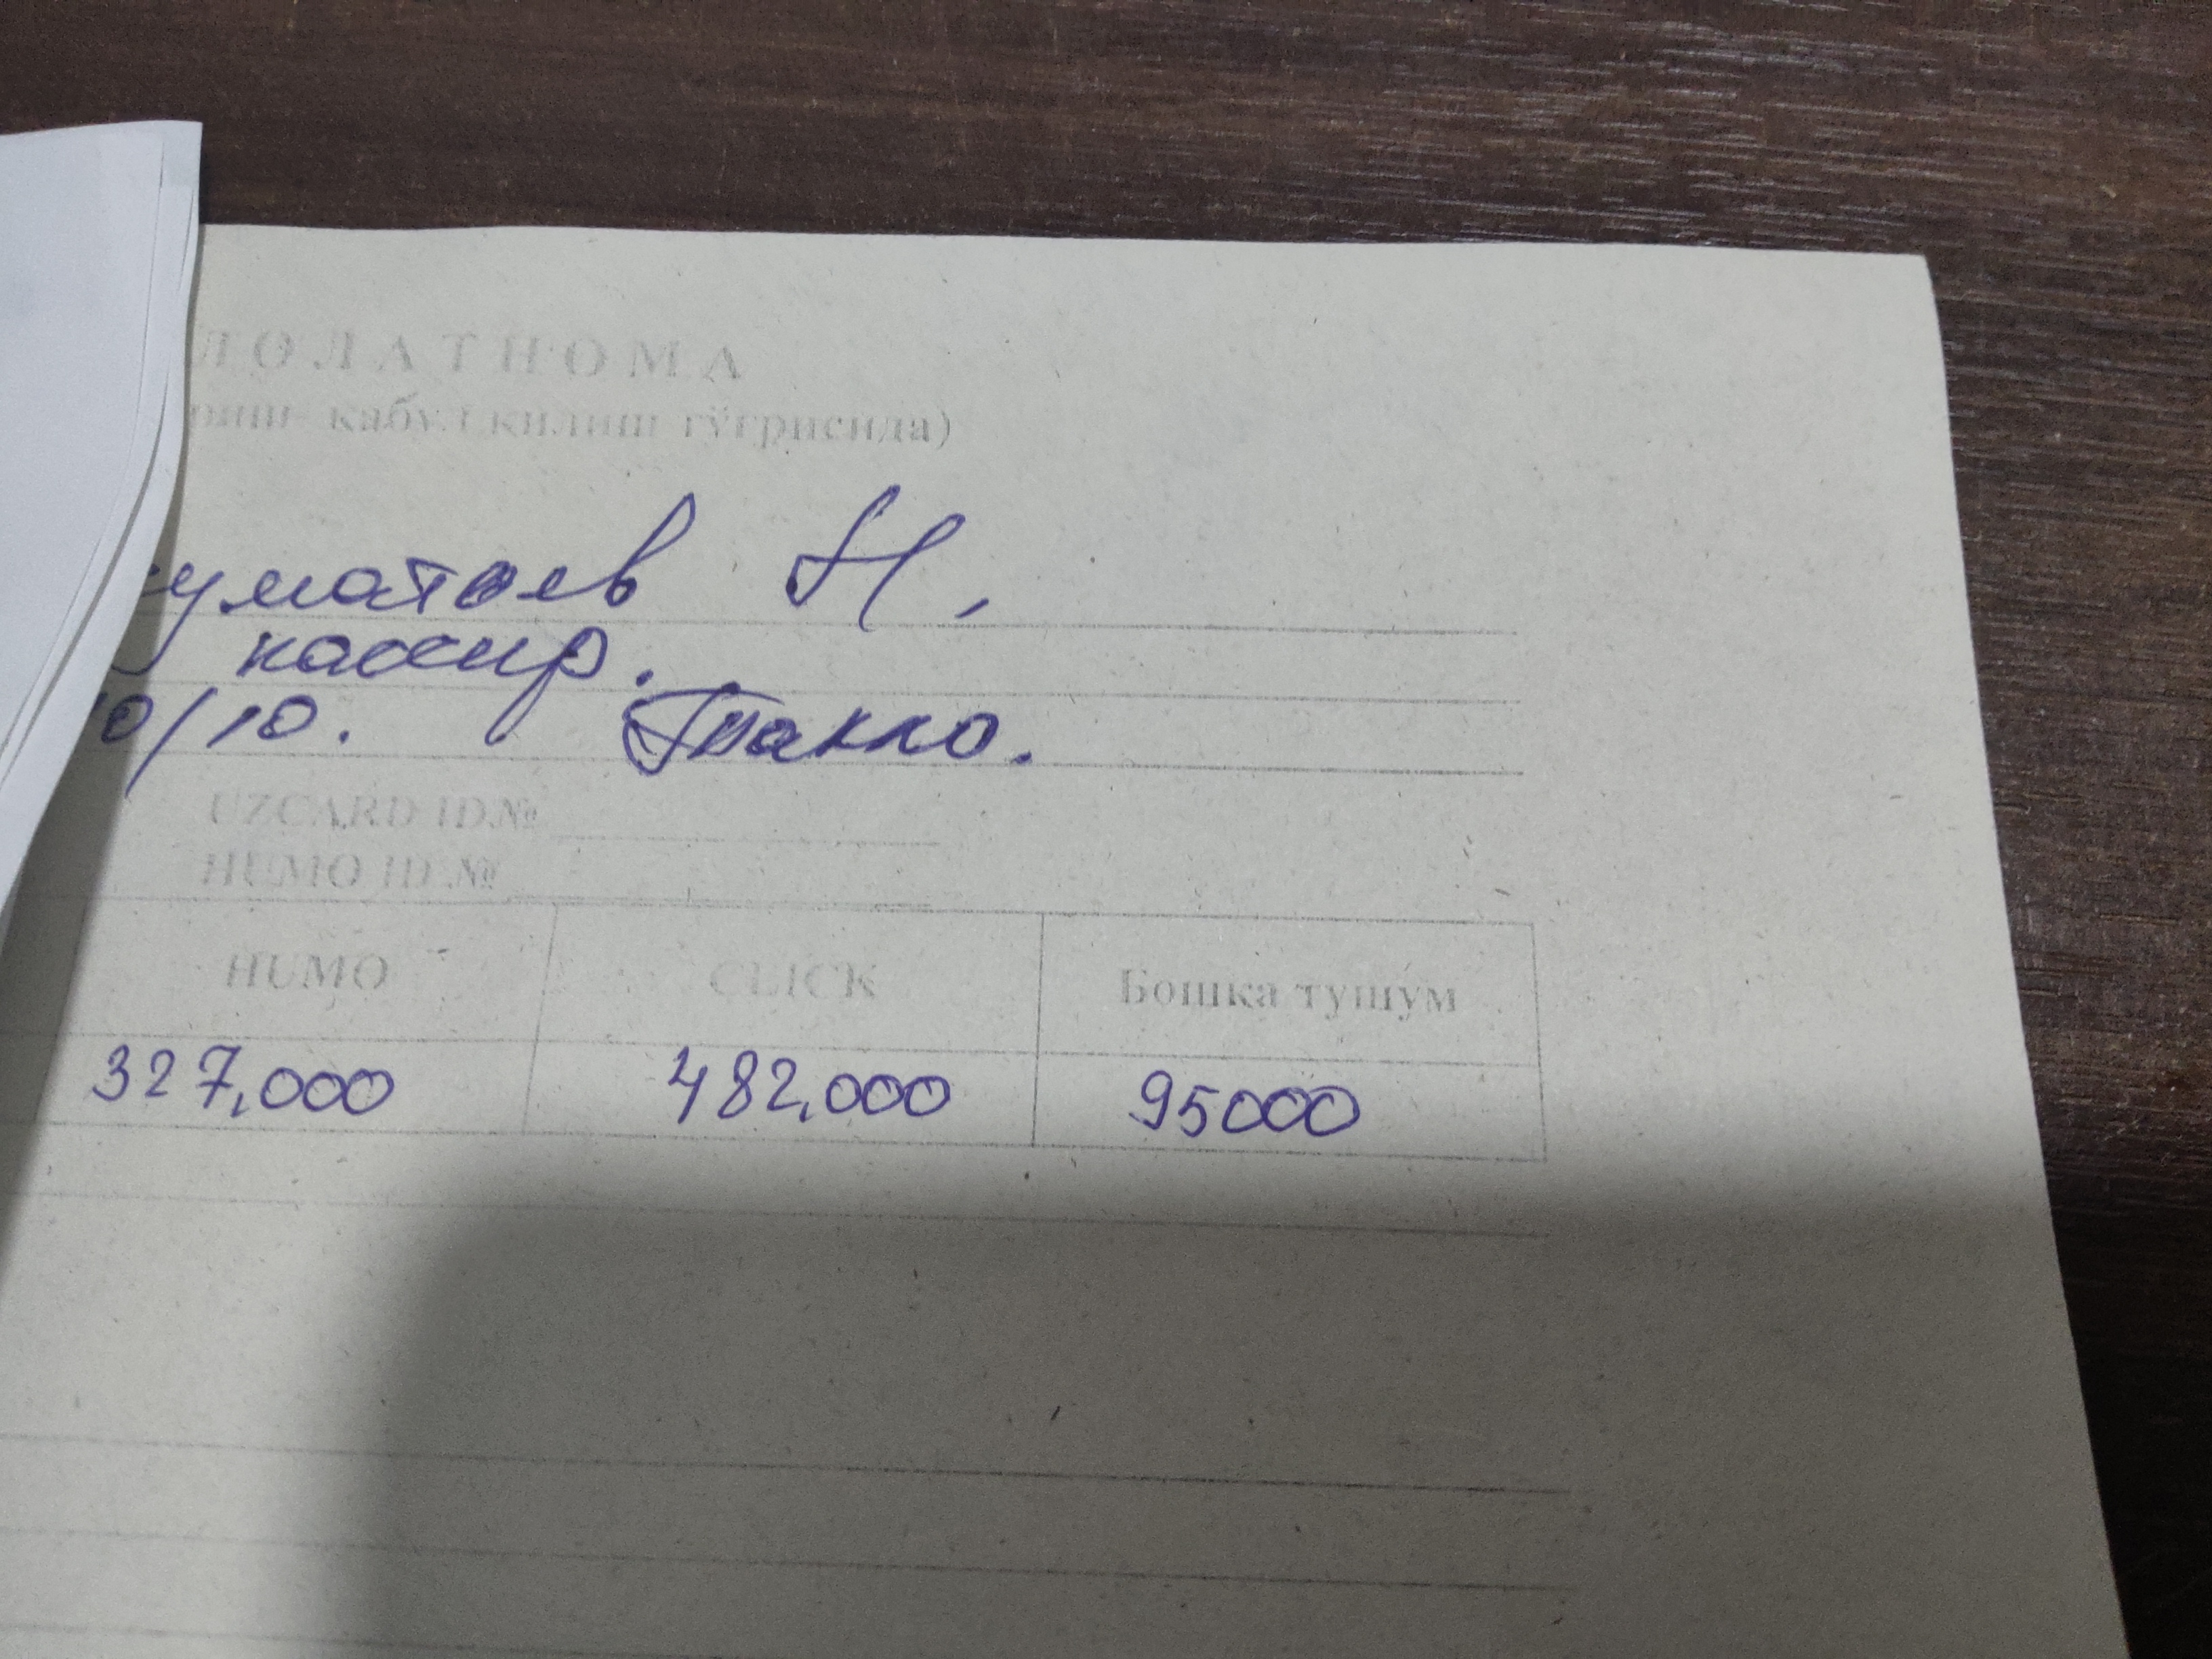 ЛОЛАТНОМА
риш- кабул килиш тўғрисида)
уматов Н,
кассир.
0/10.
UZCARD ID №
HUMO ID №
HUMO CLICK Бошка тушум
327,000 482,000 95000